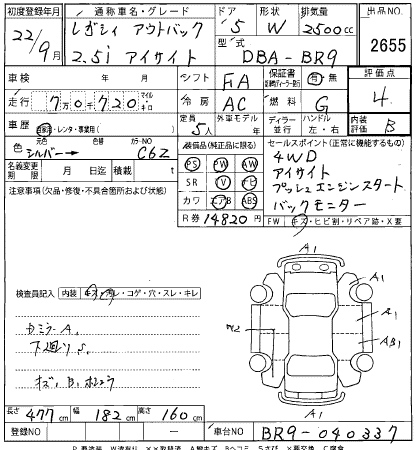 初度登録年月 通称車名・グレード ドア 形状 排気量 出品NO
22/9月 レガシィ アウトバック 5 W 2500cc
2.5i アイサイト 型式 DBA-BR9 2655
車検 年 月 シフト FA 保証書 有 無 評価点
走行 7万0千720 マイル キロ 冷房 AC 燃料 G 4
車歴 自家用・レンタ・事業用( ) 定員 5人 外車モデル 年 ディーラー 並行 ハンドル 左・右 内装評価 B
色 元色 シルバー 色替 カラーNO C6Z
装備品(純正品に限る) セールスポイント(正常に機能するもの)
名義変更期限 月 日迄 積載 t
PS PW AW 4WD
SR TV ナビ アイサイト
カワ エアB ABS プッシュエンジンスタート
R券 14820円 バックモニター
注意事項(欠品・修復・不具合箇所および状態)
FW キズ・ヒビ割・リペア跡・X要
検査員記入 内装 キズ・汚レ・コゲ・穴・スレ・キレ
A1
A1
A1
AB1
A1
長さ 477cm 幅 182cm 高さ 160cm
登録NO 車台NO BR9-040337